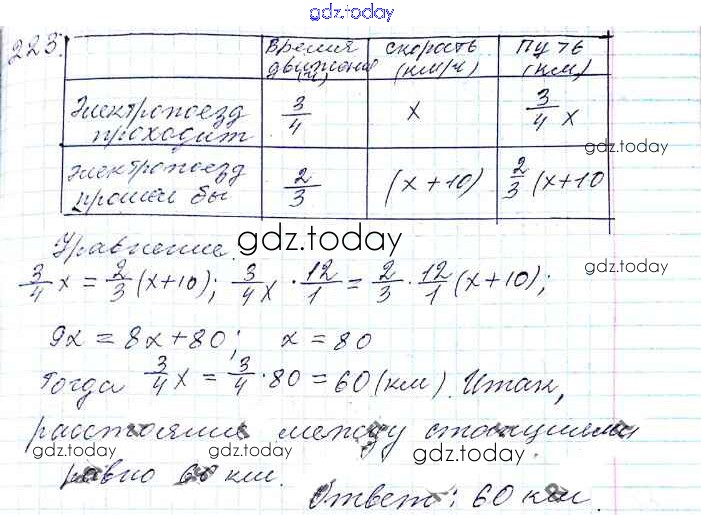 gdz.today
223.
Время движения (ч) скорость (км/ч) Путь (км)
Электропоезд проходит 3/4 x 3/4 x
gdz.today
Электропоезд прошёл бы 2/3 (x+10) 2/3 (x+10
Уравнение.
gdz.today
gdz.today
3/4 x = 2/3 (x+10); 3/4 x · 12/1 = 2/3 · 12/1 (x+10);
9x = 8x+80; x = 80
Тогда 3/4 x = 3/4 · 80 = 60 (км). Итак,
расстояние между станциями
gdz.today gdz.today gdz.today
равно 60 км.
Ответ: 60 км.